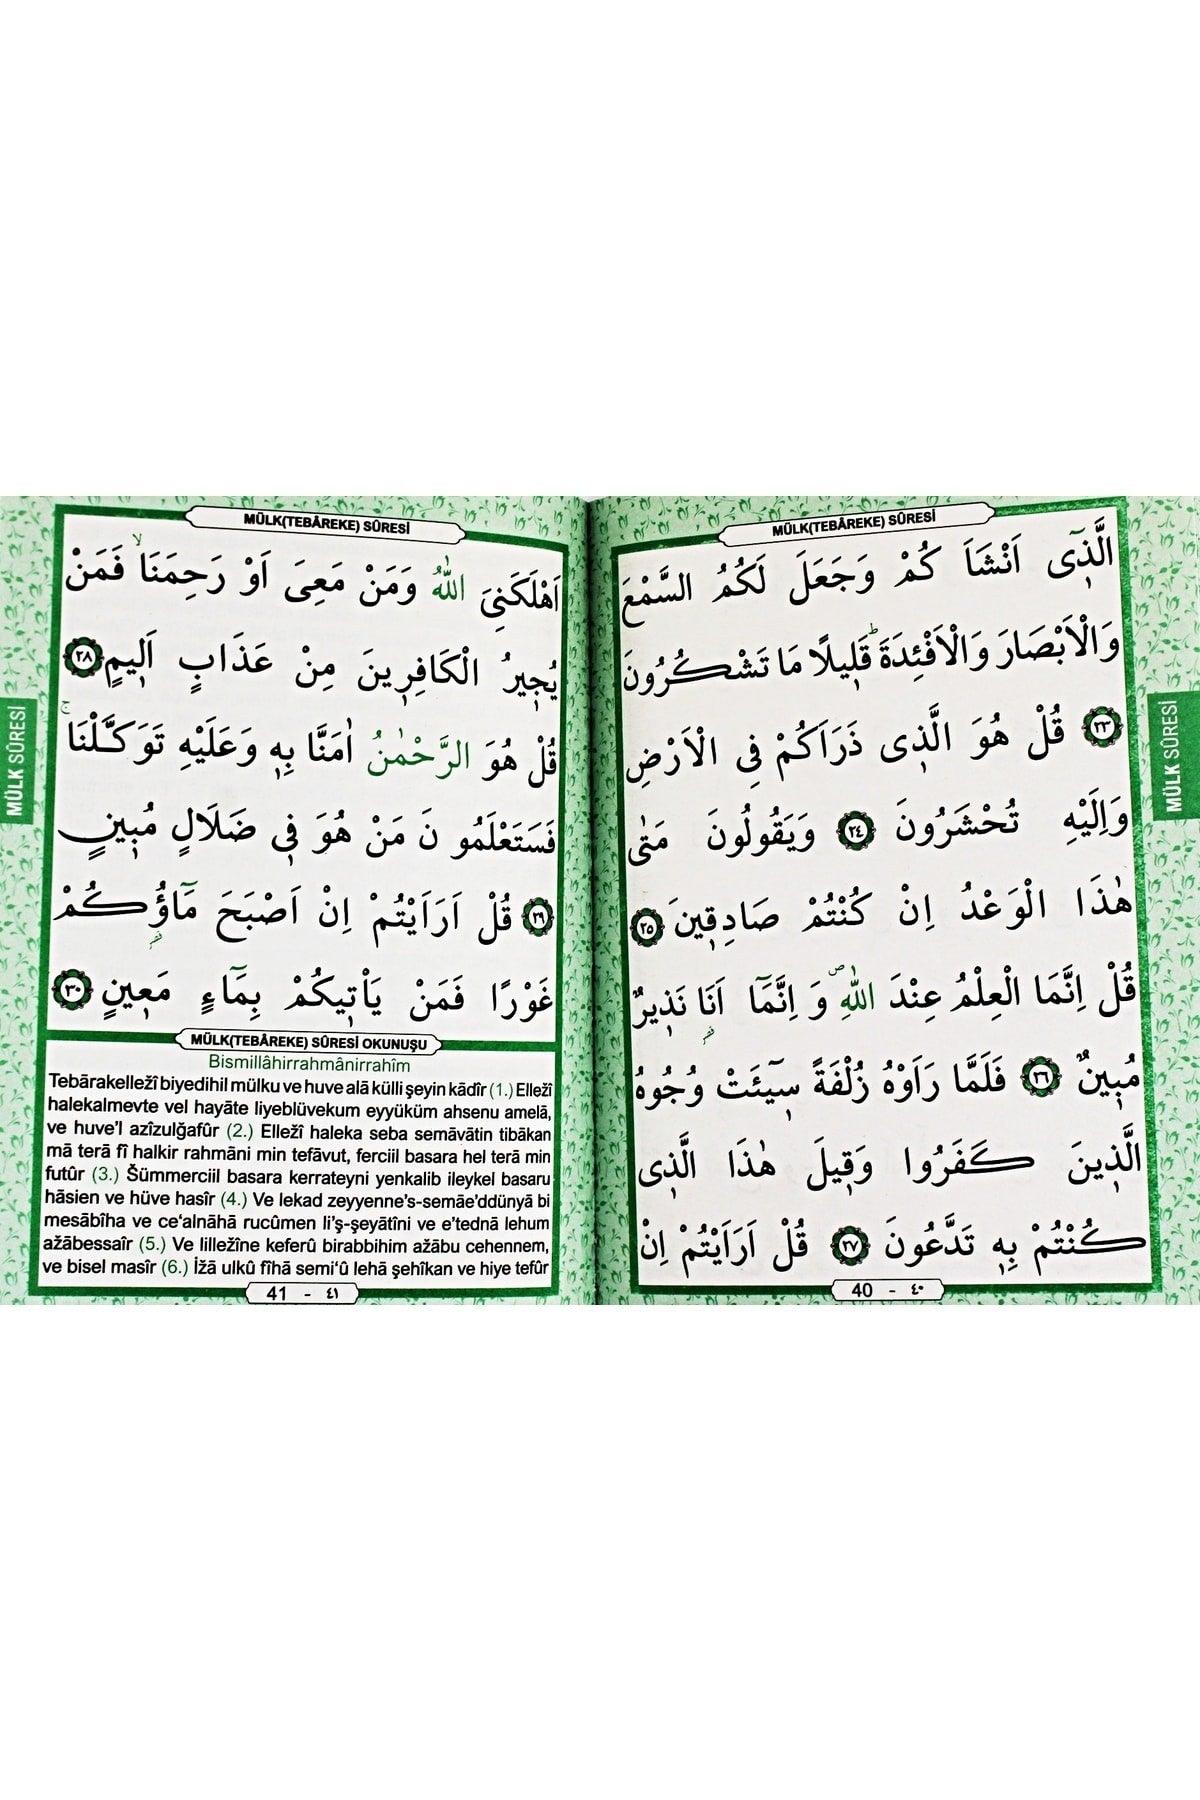 MÜLK(TEBÂREKE) SÛRESİ
الَّذ۪ٓى اَنْشَاَ كُمْ وَجَعَلَ لَكُمُ السَّمْعَ
وَالْاَبْصَارَ وَالْاَفْئِدَةَ ۜ قَل۪يلًا مَا تَشْكُرُونَ
﴿٢٣﴾ قُلْ هُوَ الَّذ۪ى ذَرَاَكُمْ فِى الْاَرْضِ
وَاِلَيْهِ تُحْشَرُونَ ﴿٢٤﴾ وَيَقُولُونَ مَتٰى
هٰذَا الْوَعْدُ اِنْ كُنْتُمْ صَادِق۪ينَ ﴿٢٥﴾
قُلْ اِنَّمَا الْعِلْمُ عِنْدَ اللّٰهِ ۖ وَ اِنَّمَٓا اَنَا نَذ۪يرٌ
مُب۪ينٌ ﴿٢٦﴾ فَلَمَّا رَاَوْهُ زُلْفَةً س۪ٓيئَتْ وُجُوهُ
الَّذ۪ينَ كَفَرُوا وَق۪يلَ هٰذَا الَّذ۪ى
كُنْتُمْ بِه۪ تَدَّعُونَ ﴿٢٧﴾ قُلْ اَرَاَيْتُمْ اِنْ
40 - ٤٠
MÜLK SÛRESİ
MÜLK(TEBÂREKE) SÛRESİ
اَهْلَكَنِىَ اللّٰهُ وَمَنْ مَعِىَ اَوْ رَحِمَنَا ۙ فَمَنْ
يُج۪يرُ الْكَافِر۪ينَ مِنْ عَذَابٍ اَل۪يمٍ ﴿٢٨﴾
قُلْ هُوَ الرَّحْمٰنُ اٰمَنَّا بِه۪ وَعَلَيْهِ تَوَكَّلْنَا ۚ
فَسَتَعْلَمُو نَ مَنْ هُوَ ف۪ى ضَلَالٍ مُب۪ينٍ
﴿٢٩﴾ قُلْ اَرَاَيْتُمْ اِنْ اَصْبَحَ مَٓاؤُ۬كُمْ
غَوْرًا فَمَنْ يَاْت۪يكُمْ بِمَٓاءٍ مَع۪ينٍ ﴿٣٠﴾
MÜLK(TEBÂREKE) SÛRESİ OKUNUŞU
Bismillâhirrahmânirrahîm
Tebārakelležî biyedihil mülku ve huve alā külli şeyin kādîr (1.) Elležî
halekalmevte vel hayāte liyeblüvekum eyyüküm ahsenu amelā,
ve huve'l azîzulğafûr (2.) Elležî haleka seba semāvātin tibākan
mā terā fî halkir rahmāni min tefāvut, ferciil basara hel terā min
futûr (3.) Šümmerciil basara kerrateyni yenkalib ileykel basaru
hāsien ve hüve hasîr (4.) Ve lekad zeyyenne's-semāe'ddünyā bi
mesābîha ve ce'alnāhā rucûmen li'ş-şeyātîni ve e'tednā lehum
ažābessaîr (5.) Ve lilležîne keferû birabbihim ažābu cehennem,
ve bisel masîr (6.) İžā ulkû fîhā semi'û lehā şehîkan ve hiye tefûr
41 - ٤١
MÜLK SÛRESİ